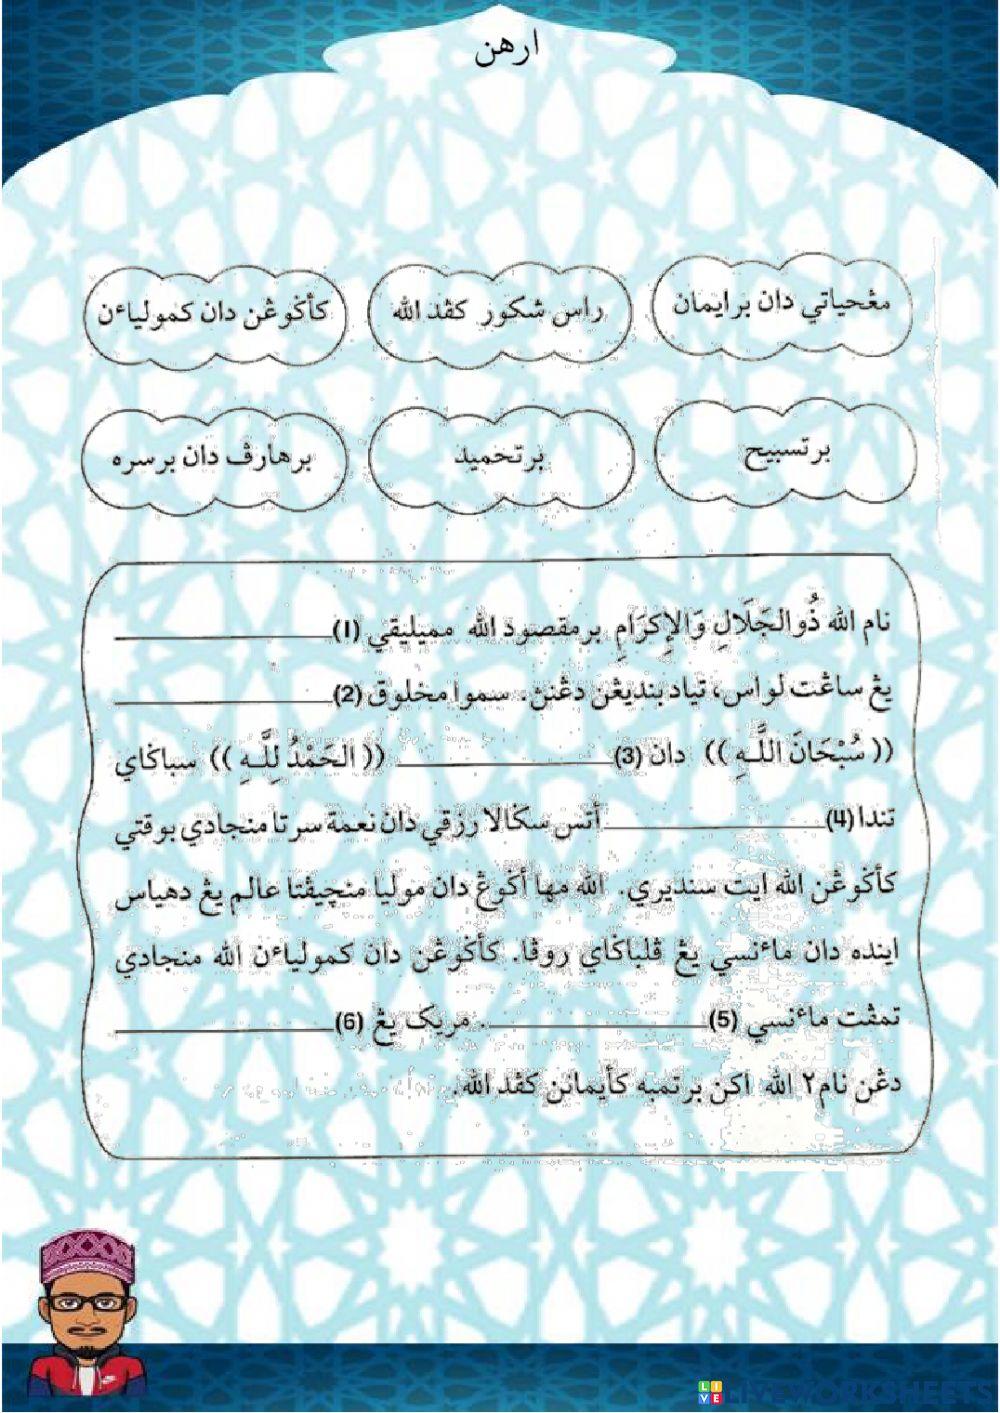 ارهن
مڠحياتي دان برايمان
راس شکور کڤد الله
کأݢوڠن دان کموليا⁠ءن
برتسبيح
برتحميد
برهارڤ دان برسره
نام الله ذُوالجَلَالِ وَالإِكرَامِ برمقصود الله مميليقي (1)
يڠ ساڠت لواس، تياد بنديڠن دڠنڽ. سموا مخلوق (2)
(( سُبْحَانَ اللَّـهِ )) دان (3) (( الحَمْدُ لِلَّـهِ )) سباݢاي
تندا (4) أتس سݢالا رزقي دان نعمة سرتا منجادي بوقتي
کأݢوڠن الله ايت سنديري. الله مها أݢوڠ دان موليا منچيڤتا عالم يڠ دهياس
اينده دان ماءنسي يڠ ڤلباݢاي روڤا. کأݢوڠن دان کمولياءن الله منجادي
تمڤت ماءنسي (5) . مريک يڠ (6)
دڠن نام٢ الله اکن برتمبه کأيمانن کڤد الله.
LIVEWORKSHEETS